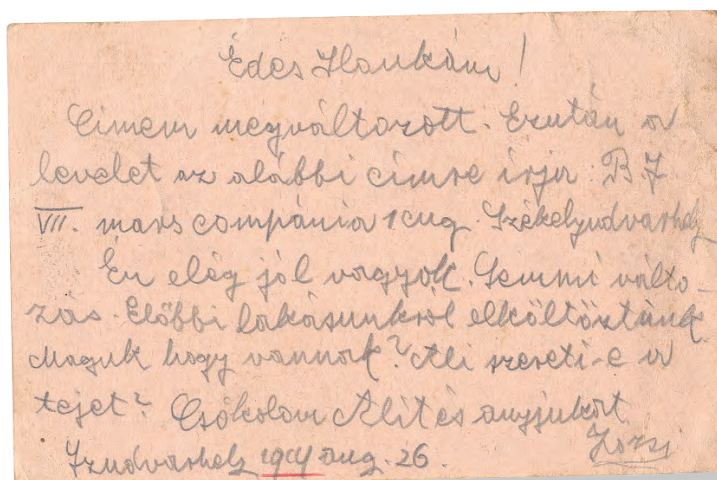 Édes Ilonkám!
Cimem megváltozott. Ezután a
levelet az alábbi cimre irja: B.J
VII. mars compánia 1 cug. Székelyudvarhely
Én elég jól vagyok. Semmiválto-
zás. Előbbi lakásunkról elköltöztünk
Maguk hogy vannak? Ali szereti-e a
tejet? Csókolom Alit és anyjukót
Józsi
Szudvarhely aug. 26.